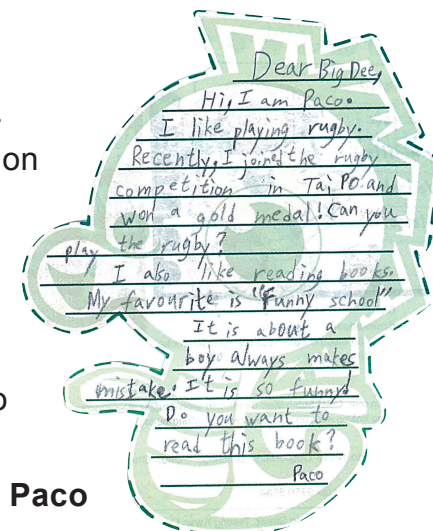 Dear Big Dee,
Hi, I am Paco.
I like playing rugby.
Recently, I joined the rugby
competition in Tai PO and
won a gold medal! Can you
play the rugby?
I also like reading books.
My favourite is "Funny school"
It is about a
boy always makes
mistake. It is so funny!
Do you want to
read this book?
Paco
on
o
Paco